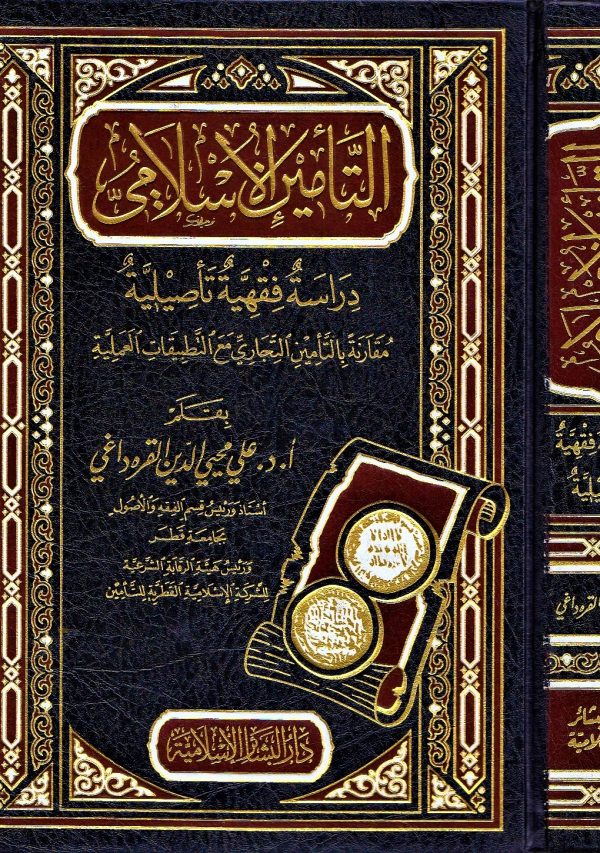 التَّأمِين الإسْلَامِيُّ
دِرَاسَةٌ فِقْهِيَّةٌ تَأصِيلِيَّةٌ
مُقَارَنَةً بِالتَّأمِينِ التِّجَارِيِّ مَعَ التَّطْبِيقَاتِ العَمَلِيَّةِ
بِقَلَم
أ.د. علي محيي الدين القره داغي
أستاذ ورئيس قسم الفقه والأصول
بجامعة قطر
ورئيس هيئة الرقابة الشرعية
للشركة الإسلامية القطرية للتأمين
دار البشائر الإسلامية
فقهية
القره داغي